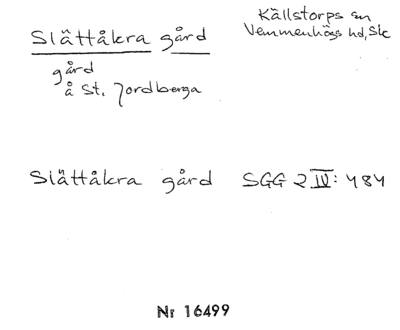 Slättåkra gård
Källstorps sn
Vemmenhögs hd, Sk
gård
å St. Jordberga
Slättåkra gård SGG 2 IV: 484
Nr 16499